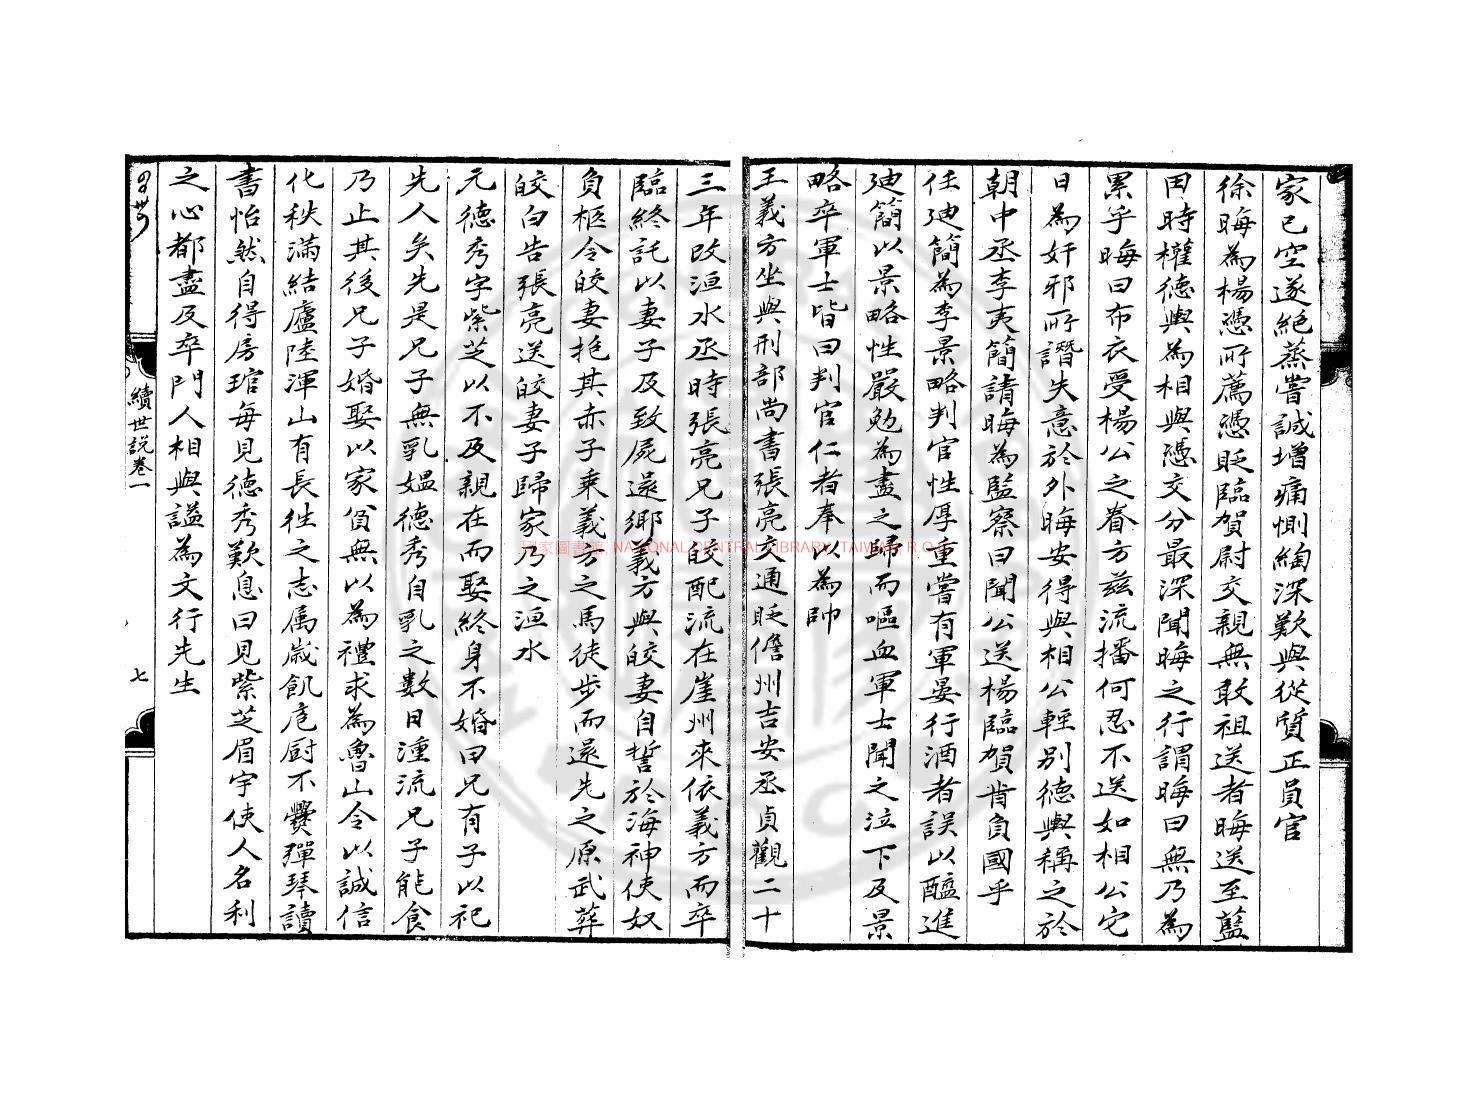 家已空遂絕蒸嘗誠增痛惻緬深歎與從質正員官
徐晦為楊憑所薦憑貶臨賀尉交親無敢祖送者晦送至藍
田時權德輿為相與憑交分最深聞晦之行謂晦曰無乃為
累乎晦曰布衣受楊公之眷方茲流播何忍不送如相公它
日為奸邪所譖失意於外晦安得與相公輕別德輿稱之於
朝中丞李夷簡請晦為監察曰聞公送楊臨賀肯負國乎
任迪簡為李景略判官性厚重嘗有軍宴行酒者誤以醯進
迪簡以景略性嚴勉為盡之歸而嘔血軍士聞之泣下及景
略卒軍士皆曰判官仁者奉以為帥
王義方坐與刑部尚書張亮交通貶儋州吉安丞貞觀二十
三年改洹水丞時張亮兄子皎配流在崖州來依義方而卒
臨終託以妻子及致屍還鄉義方與皎妻自誓於海神使奴
負柩令皎妻抱其赤子乘義方之馬徒步而還先之原武葬
皎白告張亮送皎妻子歸家乃之洹水
元德秀字紫芝以不及親在而娶終身不婚曰兄有子以祀
先人矣先是兄子無乳媼德秀自乳之數日湩流兄子能食
乃止其後兄子婚娶以家貧無以為禮求為魯山令以誠信
化秩滿結廬陸渾山有長往之志属歲飢庖厨不爨彈琴讀
書怡然自得房琯每見德秀歎息曰見紫芝眉宇使人名利
之心都盡及卒門人相與謚為文行先生
續世說卷一
七
國家圖書館 NATIONAL CENTRAL LIBRARY, TAIWAN, R.O.C